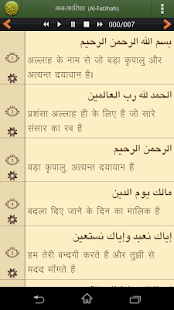 अल-फ़ातिहा (Al-Fatihah)
000/007
بسم الله الرحمن الرحيم
अल्लाह के नाम से जो बड़ा कृपालु और
अत्यन्त दयावान हैं।
الحمد لله رب العالمين
प्रशंसा अल्लाह ही के लिए हैं जो सारे
संसार का रब हैं
الرحمن الرحيم
बड़ा कृपालु, अत्यन्त दयावान हैं
مالك يوم الدين
बदला दिए जाने के दिन का मालिक हैं
إياك نعبد وإياك نستعين
हम तेरी बन्दगी करते हैं और तुझी से
मदद माँगते हैं